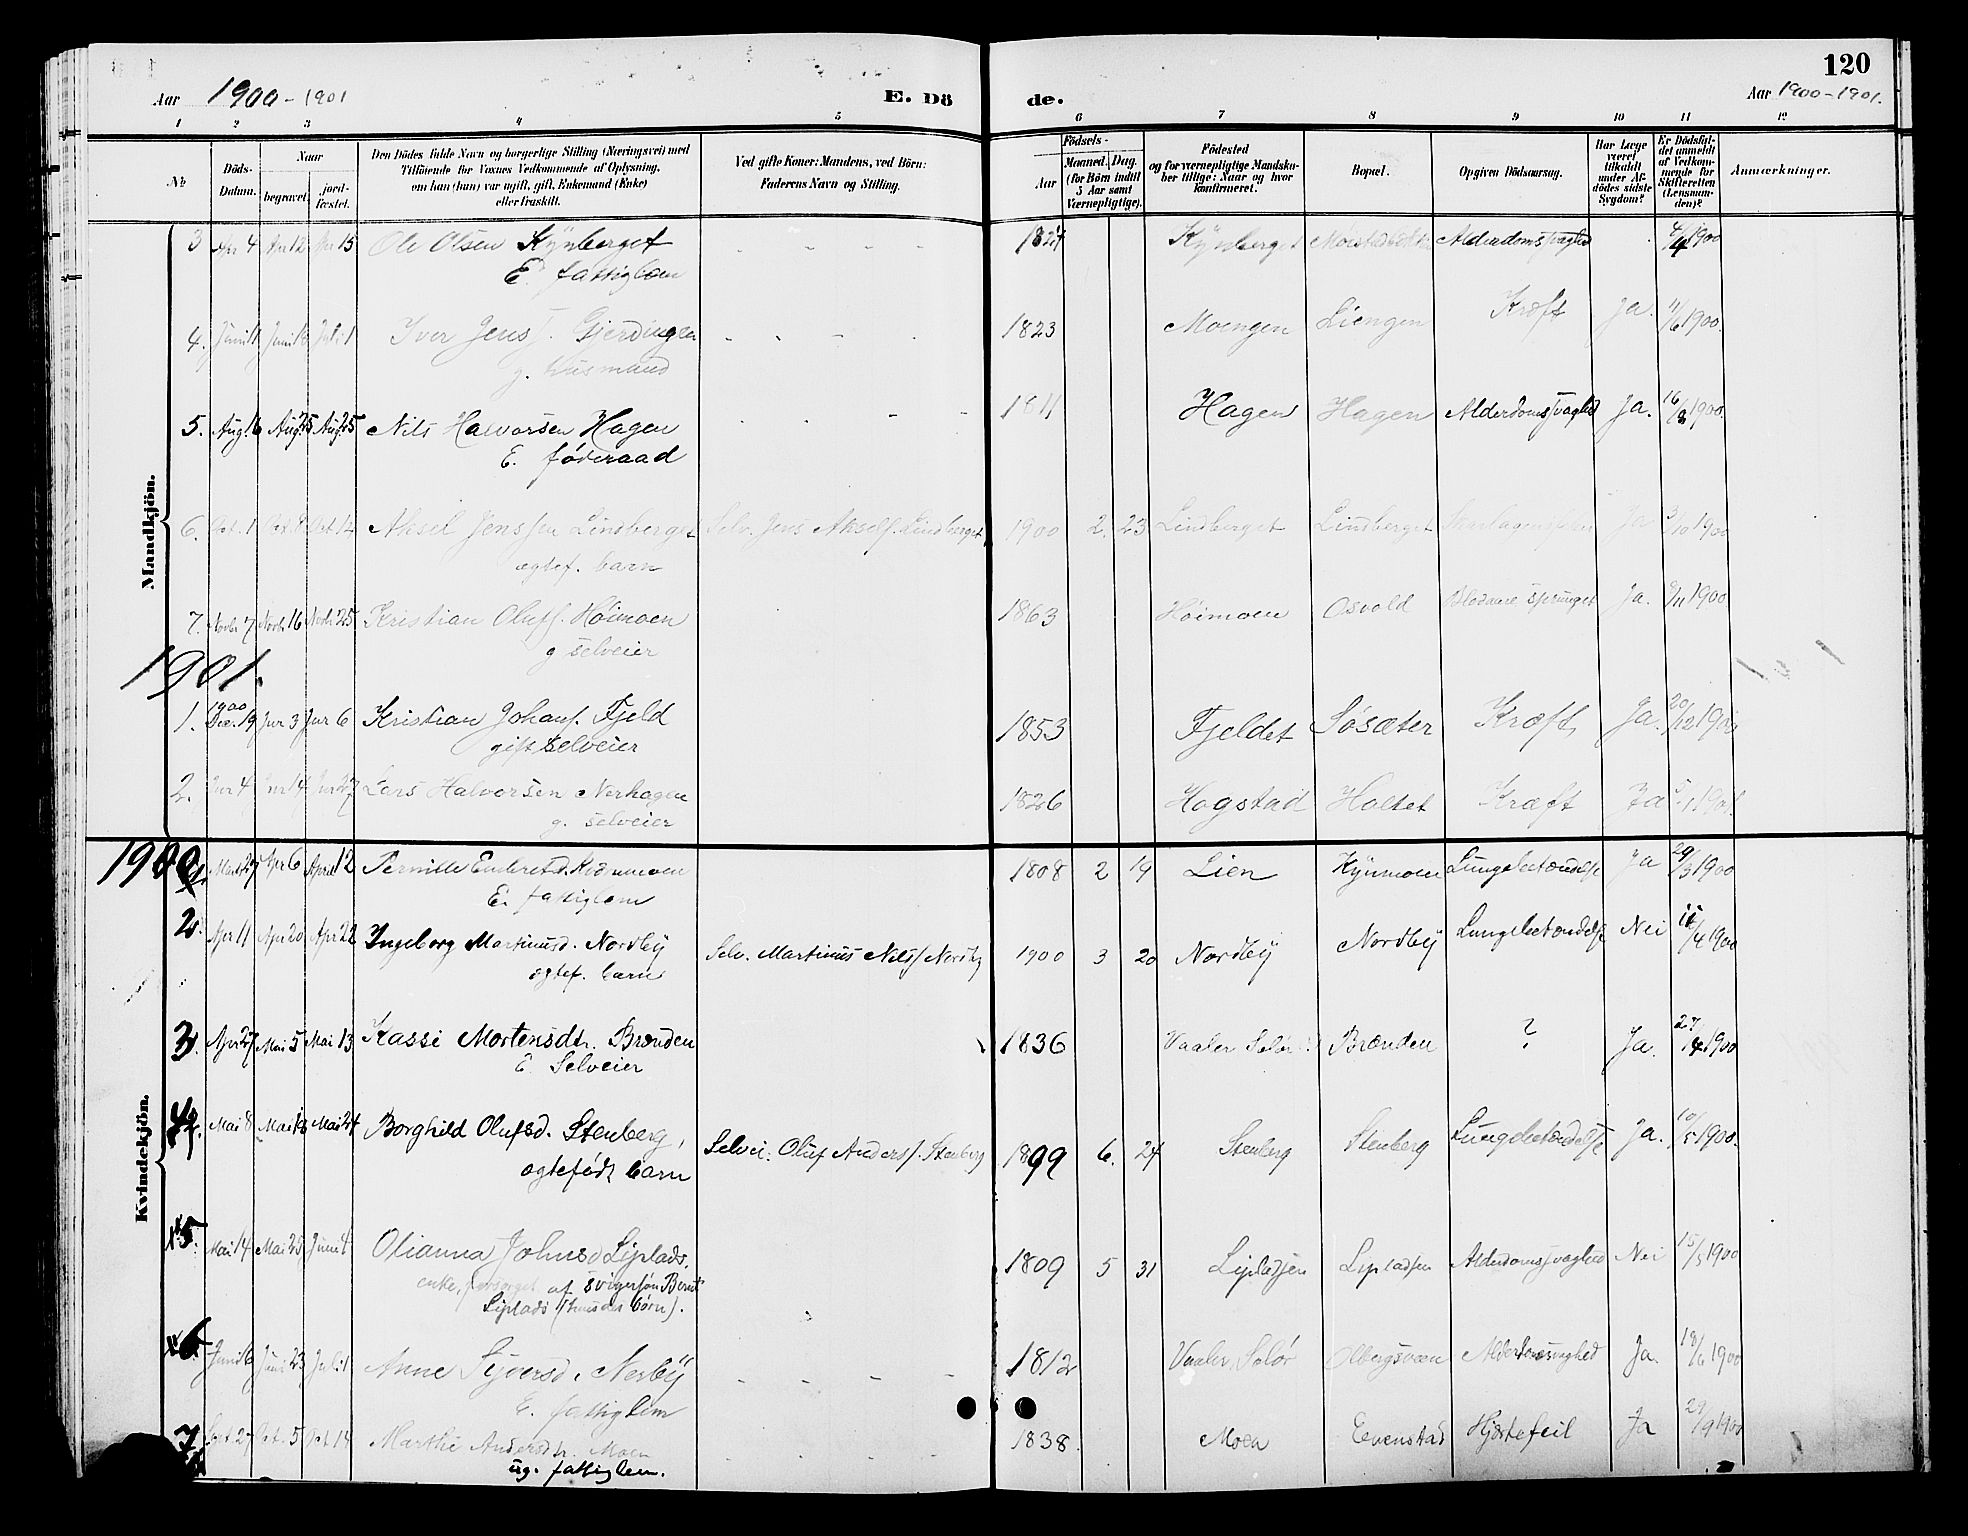 120
Aar 1900-1901
E. Dö
de.
Aar 1900-1901.
1 2 3 4 5 6 7 8 9 10 11 12
No
Döds-
Datum.
Naar
begravet.
jord-
fæstet.
Den Dödes fulde Navn og borgerlige Stilling (Næringsvei) med
Tilföiende for Voxnes Vedkommende af Oplysning,
om han (hun) var ugift, gift, Enkemand (Enke)
eller fraskilt.
Ved gifte Koner: Mandens, ved Börn:
Faderens Navn og Stilling.
Födsels-
Aar
Maaned. Dag.
(for Börn indtil
5 Aar samt
Værnepligtige).
Födested
og for værnepligtige Mandska-
ber tillige: Naar og hvor
konfirmeret.
Bopæl.
Opgiven Dödsaarsag.
Har Læge
været
tilkaldt
under Af-
dödes sidste
Sygdom?
Er Dödsfal-
det anmeldt
af Vedkom-
mende for
Skifteretten
(Lensman-
den)?
Anmærkninger.
Mandkjön.
3 Apr 4 Apr 12 Apr 15 Ole Olsen Kÿnberget - - - - 1824 Kÿnberget Alderdomssvaghed 4/4 1900
E. fattiglem
4. Juni 11 Juni 16 Juli 1 Iver Jenss. Gjerdingen - - - . 1823 Moengen Liengen Kræft Ja. 11/6 1900.
g. Husmand
5. Aug. 16 Aug. 25 Aug. 25 Nils Halvorsen Hagen - - 1811 Hagen Hagen Alderdomssvaghed Ja. 16/8 1900.
E. føderaad
6. Oct. 1 Oct. 9 Oct. 12 Aksel Jenssen Lindberget Selv. Jens Akself. Lindberget 1900 2. 23 Lindberget Lindberget Ja 3/10 1900
ægtef. barn
7. Novbr 7 Novb 16 Novb 25 Kristian Olufs. Høimoen 1863 Høimoen Osvold Blodaare sprunget Ja. 9/11 1900
g selveier
1901.
1. 1900 Dec. 19 Jnr 3 Jnr 6 Kristian Johans. Fjeld 1853 Fjeldet Søsæter Kræft Ja. 20/12 1900
gift selveier
2. Jnr 4 Jnr 14 Jnr 27 Lars Halvorsen Nerhagen 1826 Hogstad Holtet Kræft Ja 5/1 1901.
g. selveier
Kvindekjön.
1900
1. Marts 27 Apr 6 April 12 Pernille Embretsd. Kvernmoen 1808 2 19 Lien Kÿnmoen Lungebetændelse Ja 29/3 1900
E. fattiglem
2. Apr 11 Apr 20 Apr 22 Ingeborg Martinusd. Nordbÿ Selv. Martinus Nilss. Nordby 1900 3 20 Nordbÿ Nordbÿ Lungebetændelse Nei 11/4 1900
ægtef. barn
3. Apr 27 Mai 5 Mai 13 Kassi Mortensdtr. Brænden 1836 Vaaler Solør Brænden ? Ja. 27/4 1900
E. Selveier
4. Mai 8 Mai 18 Mai 24 Borghild Olufsd. Stenberg, Selvei. Oluf Anderss. Stenberg 1899 6. 24 Stenberg Stenberg Lungebetændelse Ja. 10/5 1900.
ægtefødt barn
5. Mai 14 Mai 25 Juni 4 Olianna Johnsd Liplads. 1809 5 31 Lipladsen Lipladsen Alderdomssvaghed Nei 15/5 1900
enke, forsørget af svigersøn Bernt
Liplads
6 Juni 6 Juni 23 Juli 1 Anne Sjversd. Nesbÿ - - - - 1812 Vaaler, Solør Olbergsvæen Alderdomssvaghed Ja. 18/6 1900
E. fattiglem
7 Sept. 27 Oct. 5 Oct. 14 Marthe Andersdtr. Moen 1838. Moen Evenstad Hjertefeil Ja 29/9 1900
ug. fattiglem.